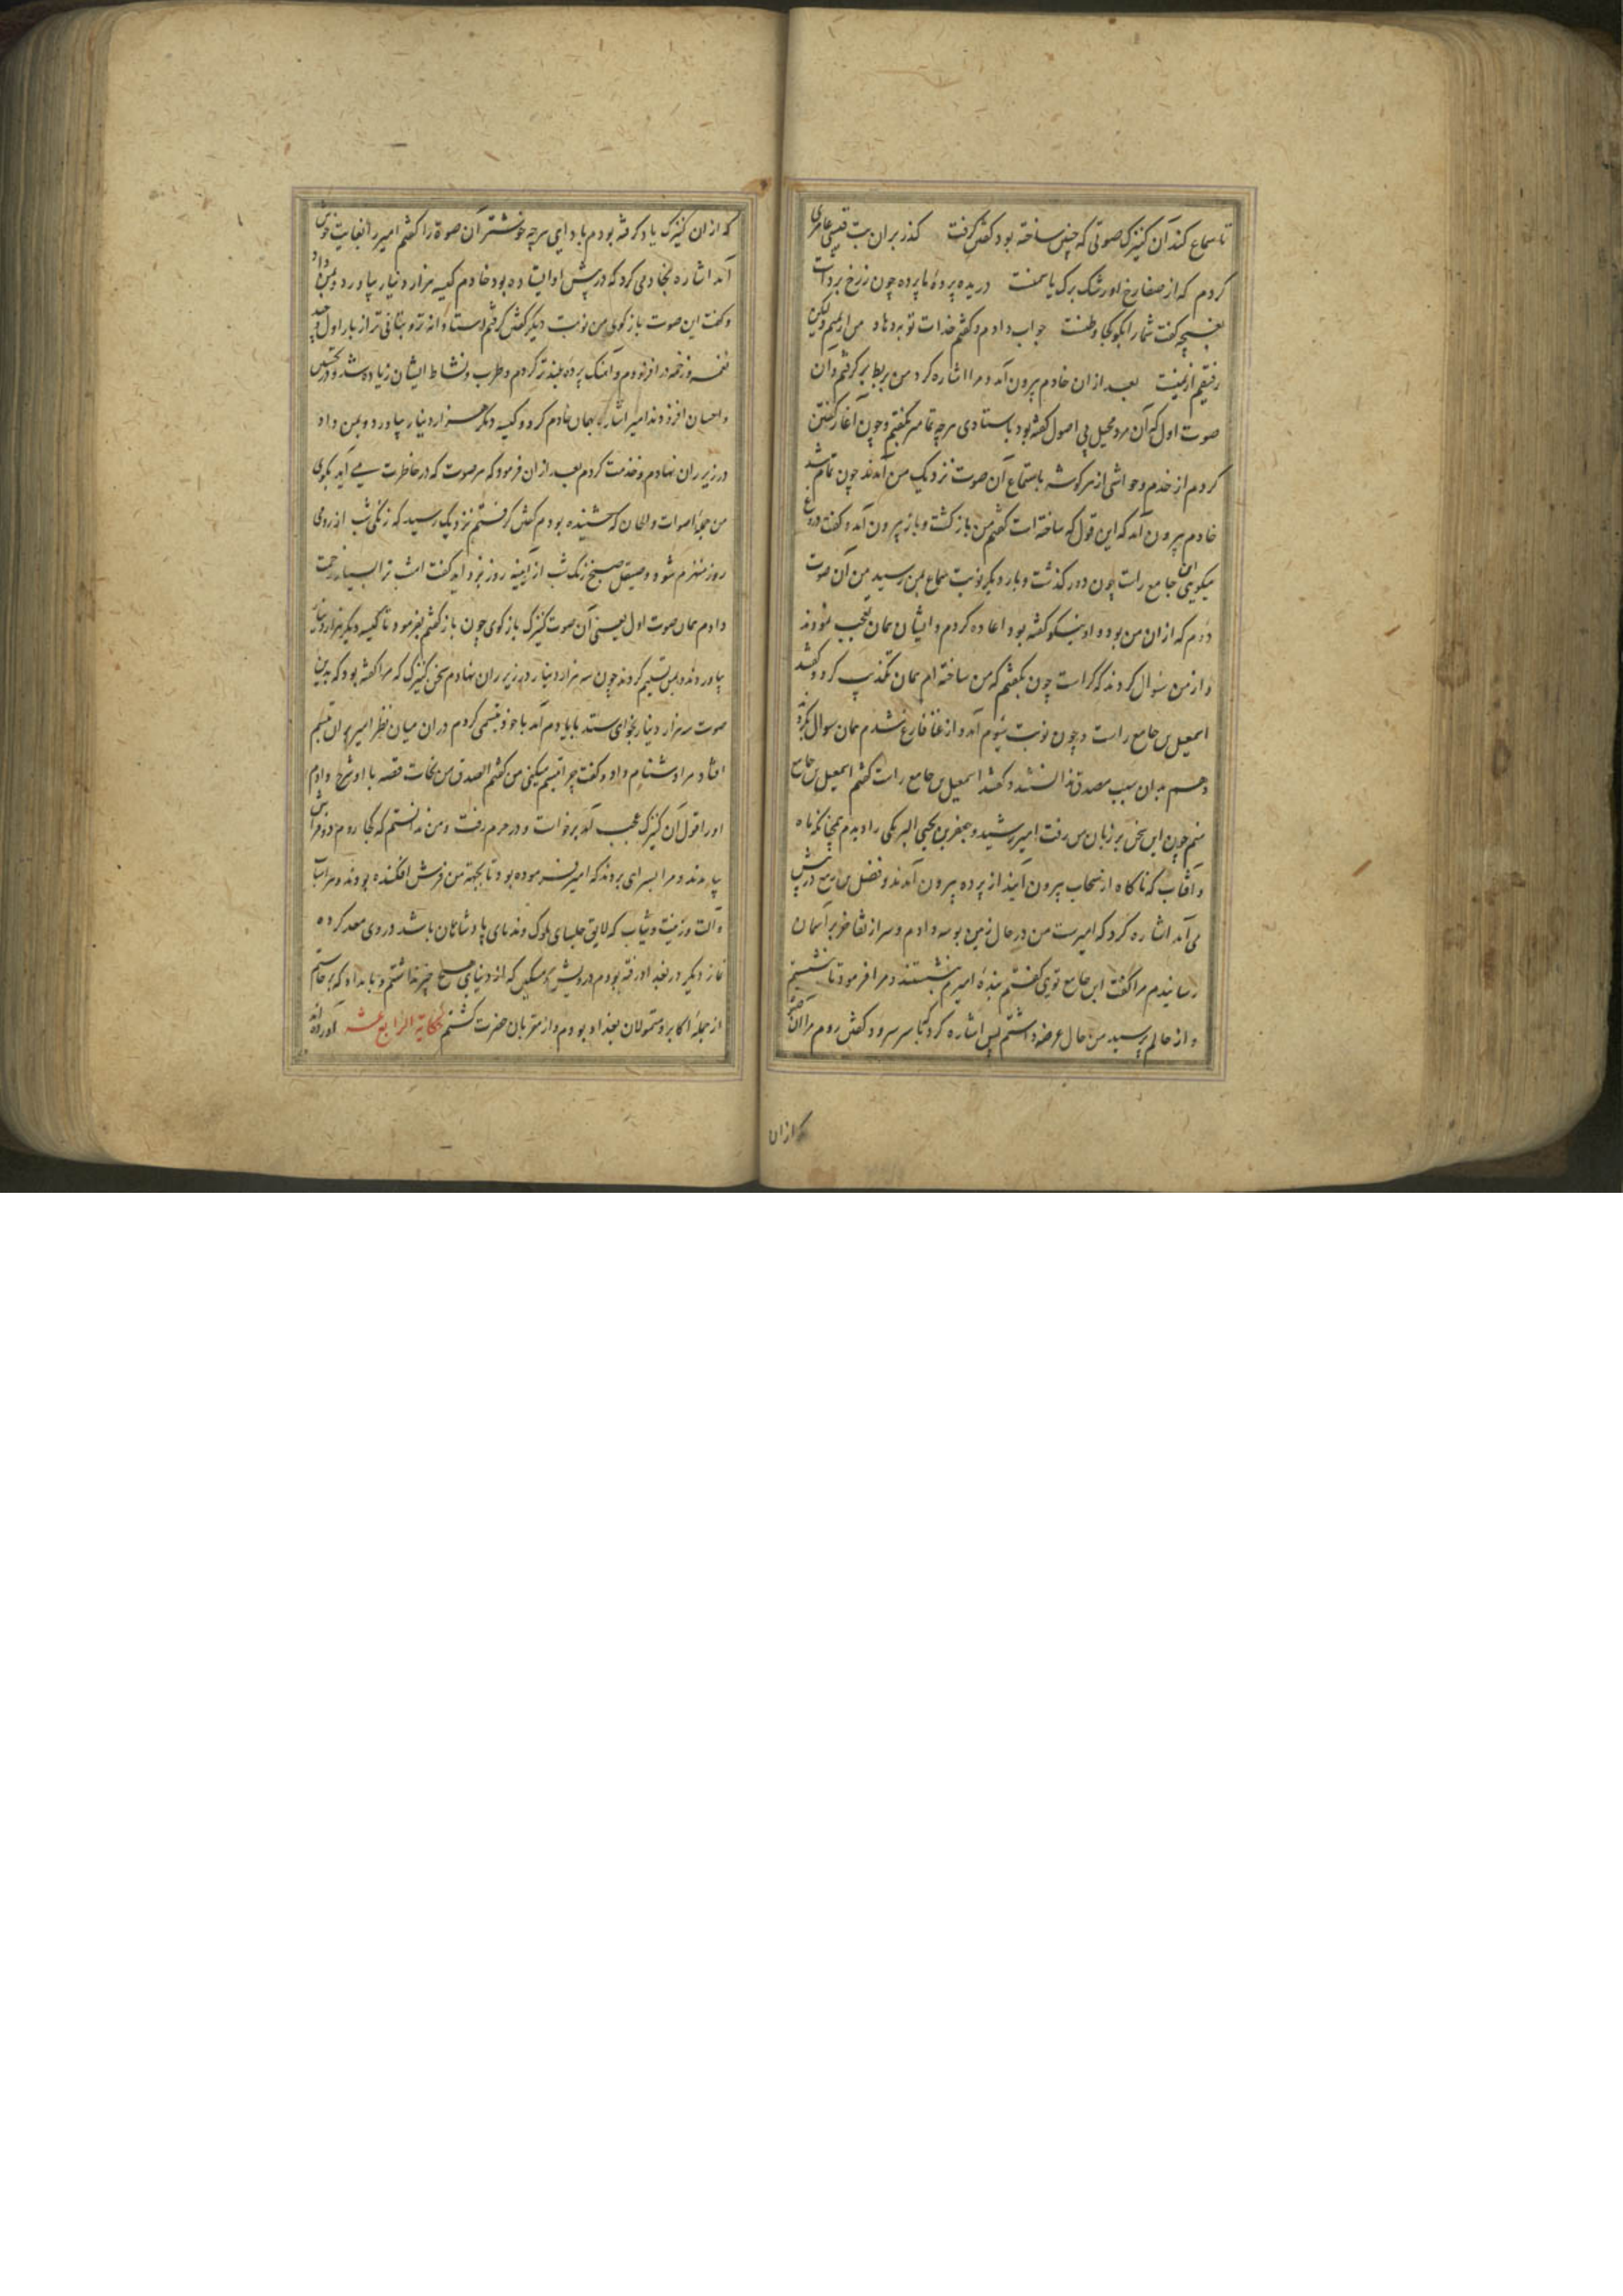 تا سماع کند آن کنیزک صوتی که چنین ساخته بود گفتن گرفت گذر بران بت قیسی عامری
کردم که از صفا رخ او رشک برک یاسمنست دریده پرده ما پرده چون ز رخ برداشت
بغنچه گفت شما را بکو کجا وطنست جواب دادم و گفتم خدات توبه دهاد
رفیقم از یمنست بعد از ان خادم بیرون آمد و مرا اشاره کرد من بربط بر کرفتم و آن
صوت اول که آن مرد محیل بی اصول کفته بود باستادی هرچه تمامتر بکفتم و چون آغاز کفتن
کردم از خدم و حواشی از هر کوشه باستماع آن صوت نزدیک من آمدند چون تمام شد
خادم بیرون آمد که این قول که ساخته است کفتم من باز کشت و باز بیرون آمد و کفت دروغ
میکویی ابن جامع راست چون دور کذشت و بار دیکر نوبت سماع بمن رسید من آن صوت
دوم که از ان من بود و او نیکو کفته بود اعاده کردم و ایشان همان تعجب نمودند
و از من سؤال کردند که کراست چون بکفتم که من ساخته ام همان تکذیب کرد و کفتند
اسمعیل بن جامع راست و چون نوبت سیوم آمد و از غنا فارغ شدم همان سوال بکردند
و هم بدان سبب مصدق نداشتند و کفتند اسمعیل بن جامع راست کفتم اسمعیل بن جامع
منم چون این سخن بر زبان من رفت امیر رشید و جعفر بن یحیی البرمکی را دیدم همچنانکه ماه
و آفتاب که ناکاه از سحاب بیرون آیند از پرده بیرون آمدند و فضل بن ربیع در پیش
می آمد اشاره کرد که امیرست من در حال زمین بوسه دادم و سر از تفاخر بر آسمان
رسانیدم مرا گفت ابن جامع تویی کفتم بنده امیرم بنشستند و مرا فرمود تا بنشستم
و از حالم پرسید من حال عرضه داشتم پس اشاره کرد که با سر سرود کفتن روم مرا آن
که از ان
که از ان کنیزک یاد کرفته بودم یاد آمد هرچه خوشتر آن صوت را کفتم امیر را بغایت خوش
آمد اشاره بخادمی کرد که در پیش او ایستاده بود خادم کیسه هزار دینار بیاورد و بمن داد
و کفت این صوت باز کوی من نوبت دیکر کفتن کرفتم استادانه تر و بتانی تر از بار اول و چند
نغمه و زخمه در افزودم و آهنک پرده بلندتر کردم و طرب و نشاط ایشان زیاده شد و در تحسین
و احسان افزودند امیر اشاره بهمان خادم کرد و کیسه دیکر هزار دینار بیاورد و بمن داد
در زیر ران نهادم و خدمت کردم بعد از ان فرمود که هر صوت که در خاطرت می آید بکوی
من جمله اصوات و الحان که شنیده بودم کفتن کرفتم نزدیک رسید که زنکی شب از رومی
روز منهزم شود و صیقل صبح زنک شب از آینه روز بزداید کفت امشب ترا بسیار زحمت
دادم همان صوت اول یعنی آن صوت کنیزک باز کوی چون باز کفتم بفرمود تا کیسه دیکر هزار دینار
بیاوردند و بمن تسلیم کردند چون سه هزار دینار در زیر ران نهادم سخن کنیزک که مرا کفته بود که بدین
صوت سه هزار دینار بخواهی ستد با یادم آمد با خود تبسمی کردم در ان میان نظر امیر بران تبسم
افتاد مرا دشنام داد و کفت چرا تبسم میکنی من کفتم الصدق من النجات قصه با او شرح دادم
او را قول آن کنیزک عجب آمد برخاست و در حرم رفت و من ندانستم که کجا روم دو فراش
بیامدند و مرا بسرای بردند که امیر فرموده بود تا بجهت من فرش افکنده بودند و هر اسباب
و آلت و زینت و ثیاب که لایق جلسای ملوک و ندمای پادشاهان باشد در وی معد کرده
نماز دیکر در بغداد رفته بودم درویش و مسکین که از دنیا هیچ چیز نداشتم و بامداد که برخاستم
از جمله اکابر و متمولان بغداد بودم و از مقربان حضرت کشتم الحکایة الرابع عشر آورده اند